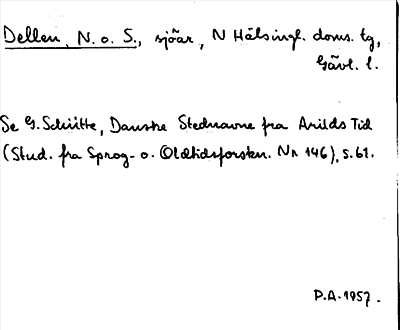 Dellen, N. o. S., sjöar, N Hälsingl. doms. tg,
Gävl. l.
Se G. Schütte, Danske Stednavne fra Arilds Tid
(Stud. fra Sprog- o. Oldtidsforskn. Nr 146), s. 61.
P.A. 1957.